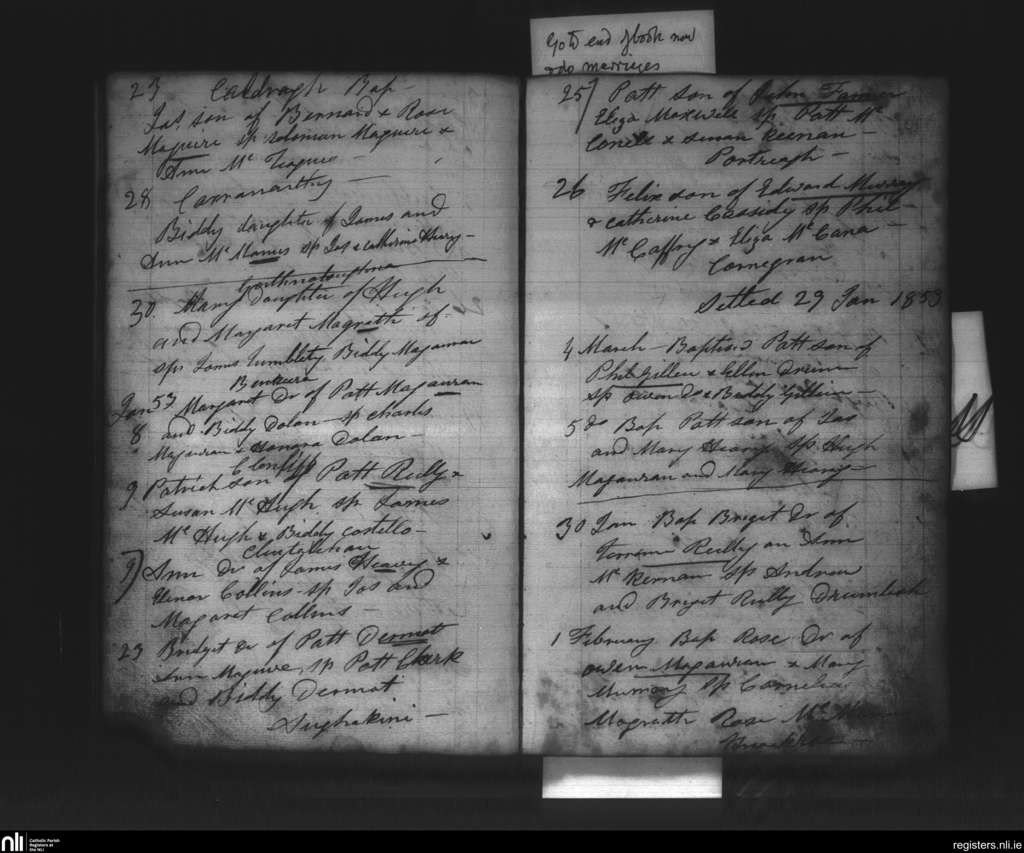 Go to end of book now
& do marriages
23 Caldragh Bap
Jas. son of Bernard & Rose
Maguire sp Soloman Maguire &
Ann Mc Teague
28 Carranarthy
Biddy daughter of James and
Ann Mc Manus sp Jas & Catherine Heary
30. Mary Daughter of Hugh
and Margaret Magrath of
sps James Cumblety Biddy Magauran
Jan 53 Margaret Dr of Patt Magauran
8 and Biddy Dolan sp Charles
Magauran & Honora Dolan
9 Patrick son of Patt Reily &
Susan Mc Hugh sp James
Mc Hugh & Biddy Costello
9) Ann Dr of James Heavey &
Elenor Collins sp Jas and
Magaret Collins
23 Bridget Dr of Patt Dermot
Ann Maguire, sp Patt Clark
and Biddy Dermot
25) Patt son of John
Eliza Maxwell sp Patt Mc
& Susan Keenan
Portreagh
26 Felix son of Edward Murray
& Catherine Cassidy sp Phil
Mc Caffry & Eliza Mc Cana
Cornegran
Settled 29 Jan 1853
4 March Baptised Patt son of
Phil Gillen & Ellen
sp Owen Do & Biddy Gillen
5 do Bap Patt son of Jas
and Mary Heany sps Hugh
Magauran and Mary Heany
30 Jan Bap Briget Dr of
Reilly an Ann
Mc Kernan sps Andrew
and Briget Reilly
1 February Bap Rose Dr of
Owen Magauran & Mary
sps
Magrath Rose Mc
nli
Catholic Parish
Registers at
the NLI
registers.nli.ie